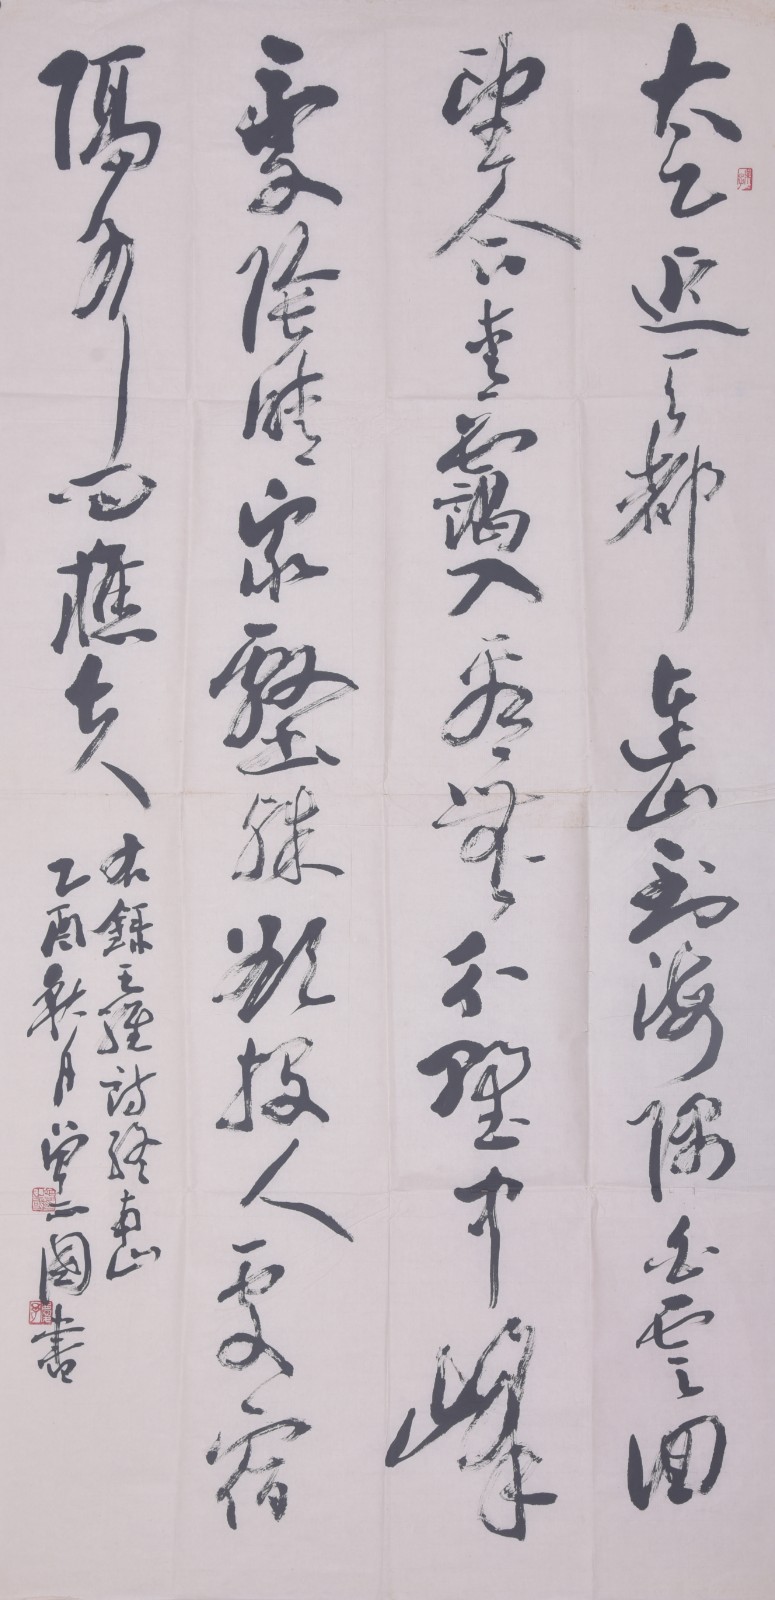 太乙近天都連山到海隅白雲回
望合青靄入看無分野中峰
變陰晴眾壑殊欲投人處宿
隔水問樵夫
右錄王維詩終南山
乙酉秋月國書